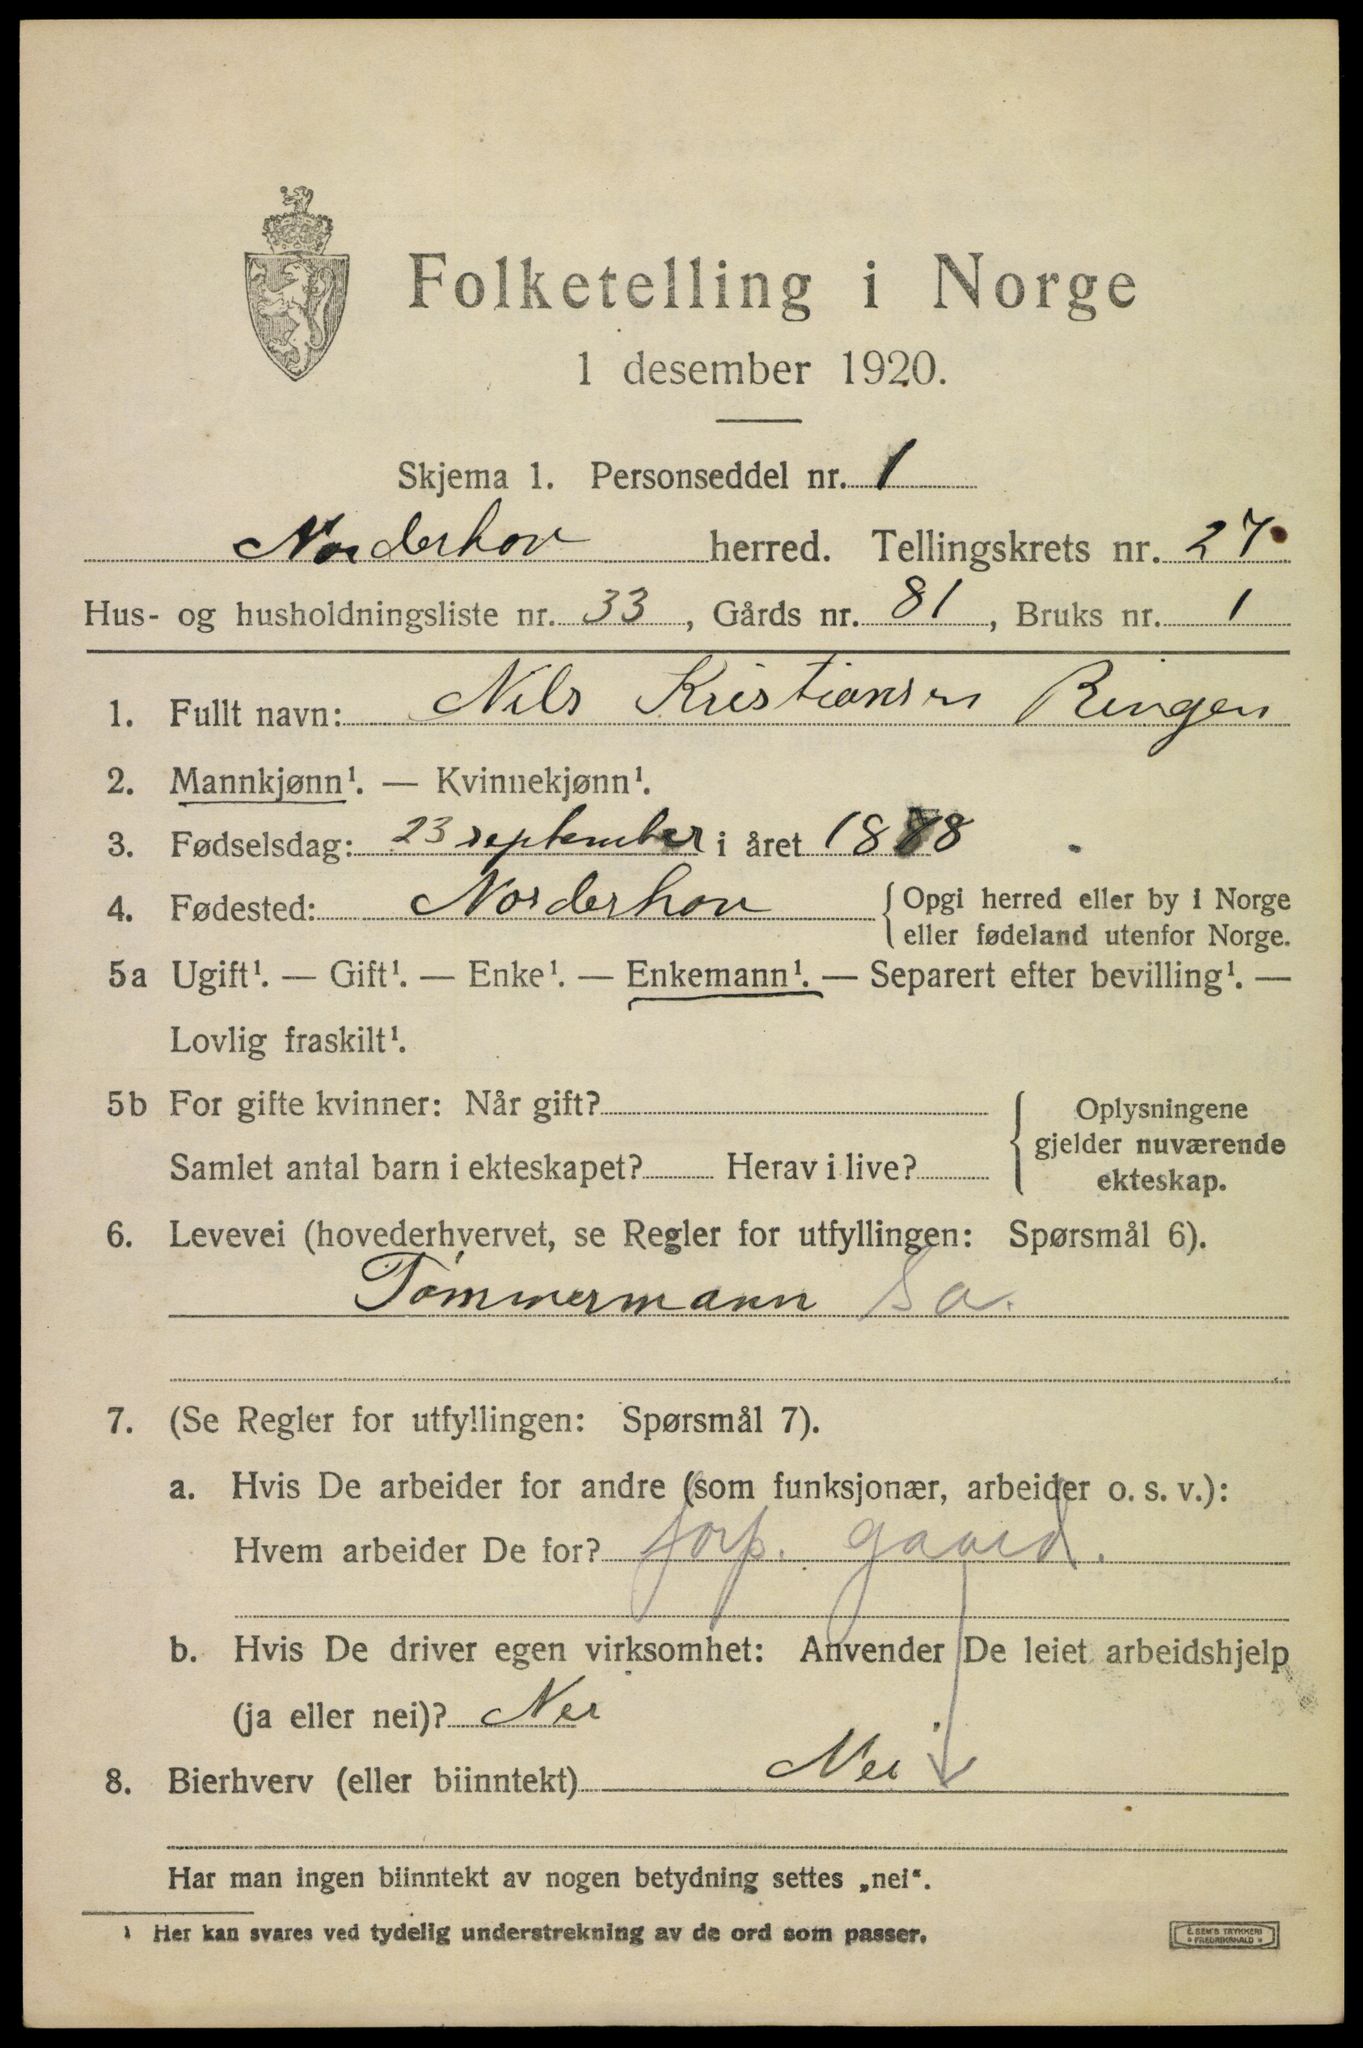 Folketelling i Norge
1 desember 1920.
Skjema 1. Personseddel nr. 1
Norderhov herred. Tellingskrets nr. 27
Hus- og husholdningsliste nr. 33, Gårds nr. 81, Bruks nr. 1
1. Fullt navn: Nils Kristiansen Ringen
2. Mannkjønn¹. — Kvinnekjønn¹.
3. Fødselsdag: 23 september i året 1888
4. Fødested: Norderhov { Opgi herred eller by i Norge
eller fødeland utenfor Norge.
5a Ugift¹. — Gift¹. — Enke¹. — Enkemann¹. — Separert efter bevilling¹. —
Lovlig fraskilt¹.
5b For gifte kvinner: Når gift?
Samlet antal barn i ekteskapet? Herav i live?
{ Oplysningene
gjelder nuværende
ekteskap.
6. Levevei (hovederhvervet, se Regler for utfyllingen: Spørsmål 6).
Tømmermann Sa.
7. (Se Regler for utfyllingen: Spørsmål 7).
a. Hvis De arbeider for andre (som funksjonær, arbeider o. s. v.):
Hvem arbeider De for? forp. gaard.
b. Hvis De driver egen virksomhet: Anvender De leiet arbeidshjelp
(ja eller nei)? Nei
8. Bierhverv (eller biinntekt) Nei
Har man ingen biinntekt av nogen betydning settes „nei“.
¹ Her kan svares ved tydelig understrekning av de ord som passer.
E. SEM'S TRYKKERI
FREDRIKSHALD